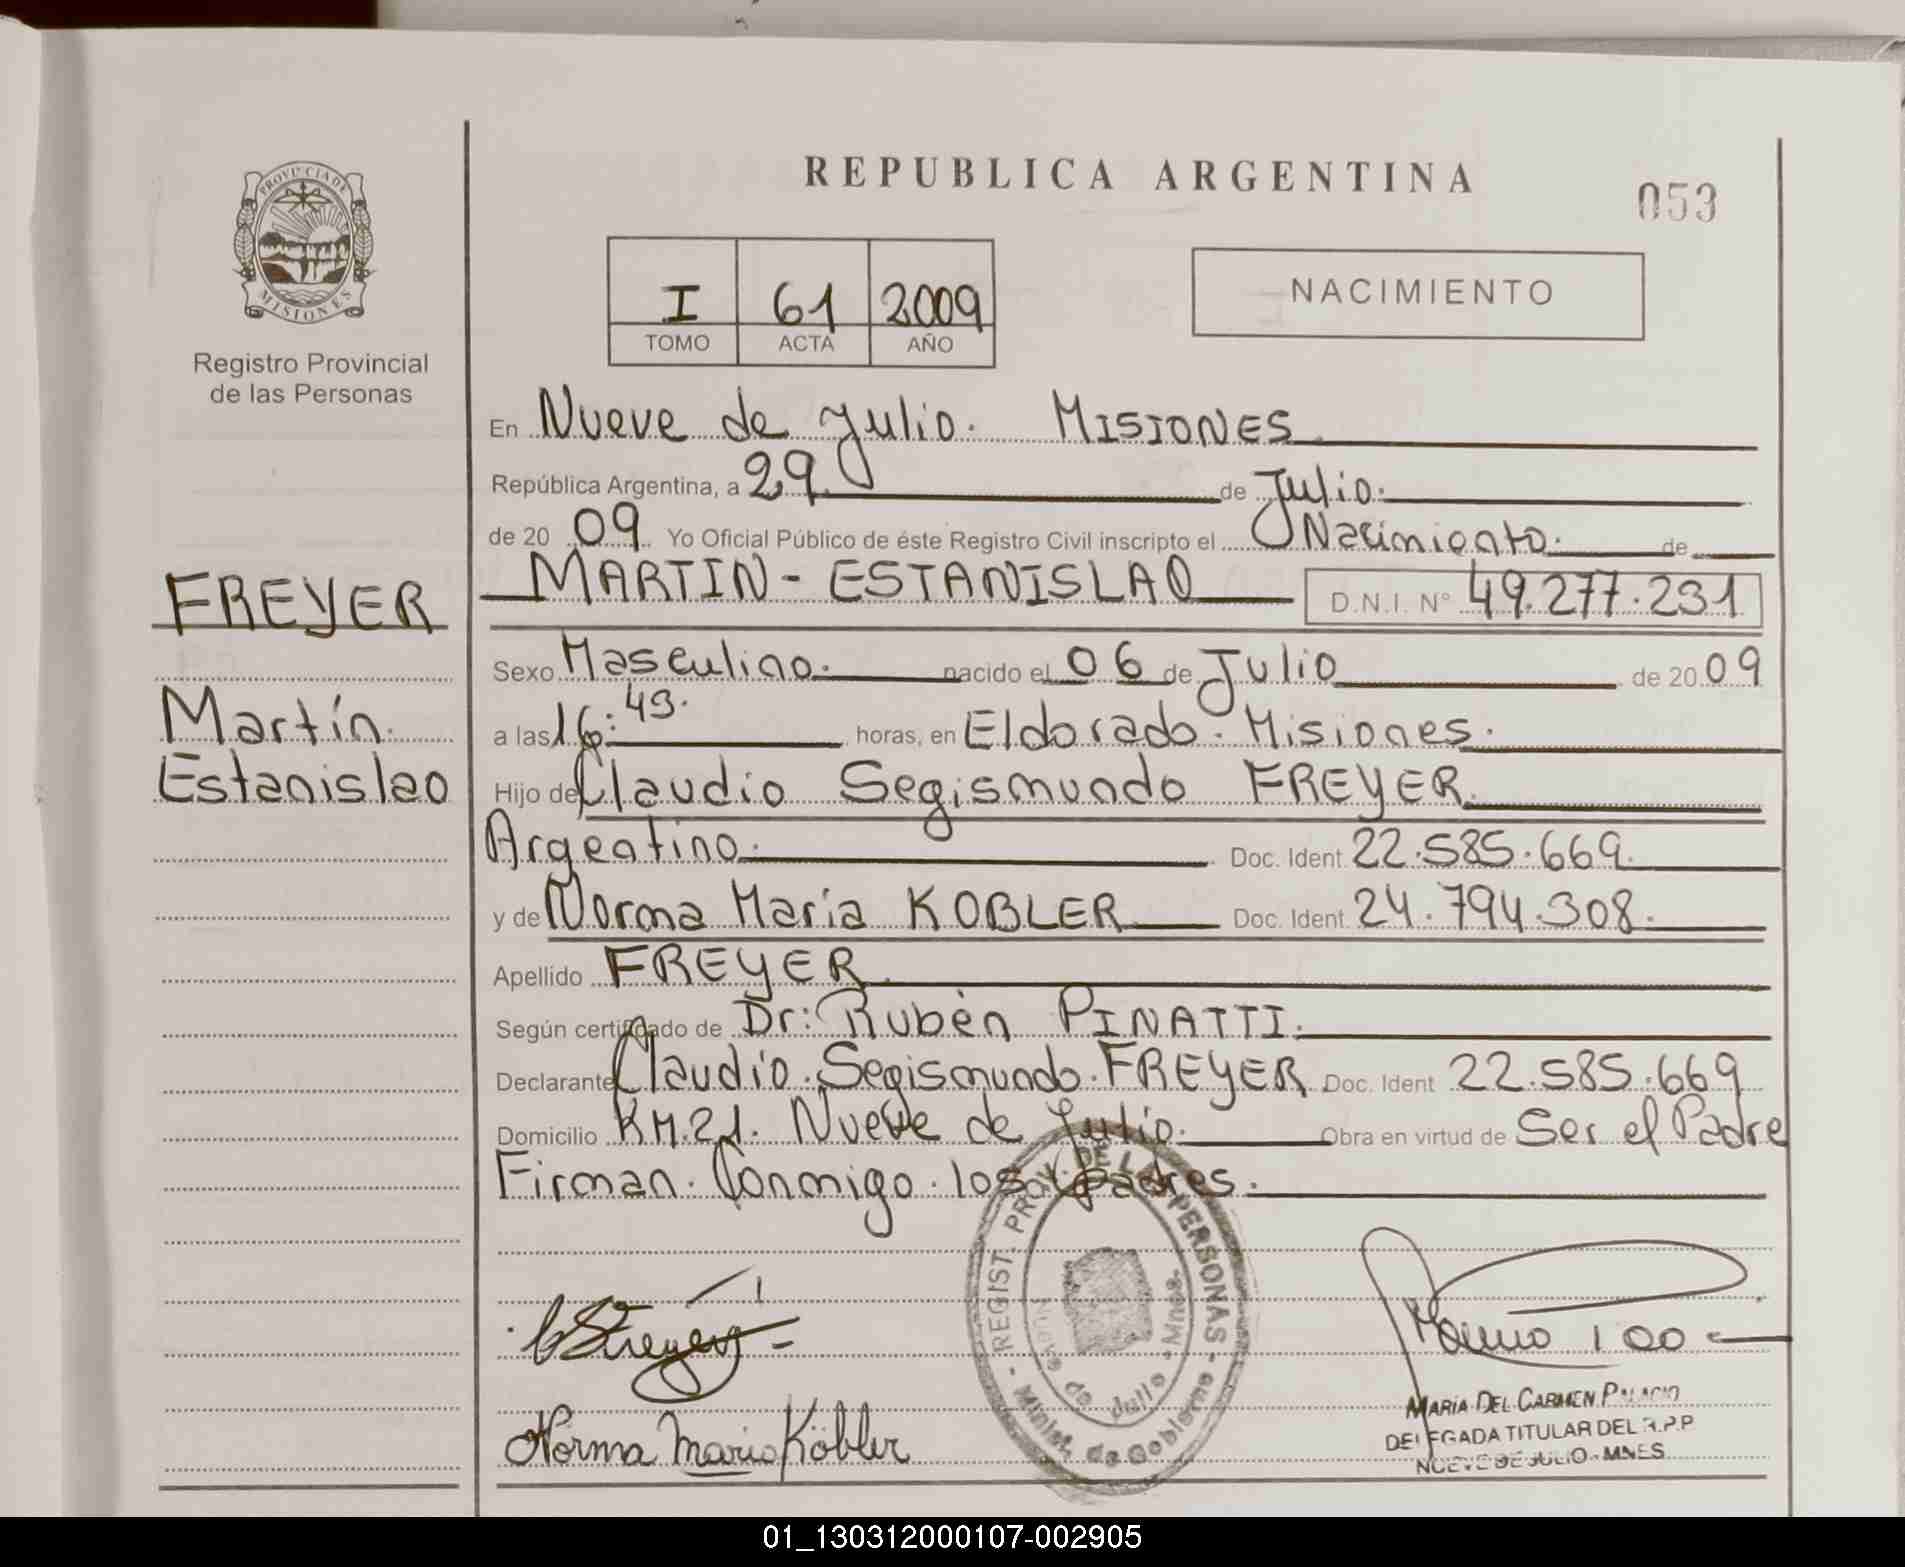 REPUBLICA ARGENTINA
053
PROVINCIA DE
MISIONES
Registro Provincial
de las Personas
I 61 2009
TOMO ACTA AÑO
NACIMIENTO
En Nueve de Julio. MISIONES
República Argentina, a 29 de Julio.
de 20 09 Yo Oficial Público de éste Registro Civil inscripto el Nacimiento. de
MARTIN - ESTANISLAO D.N.I. N° 49.277.231
FREYER
Martín
Estanislao
Sexo Masculino. nacido el 06 de Julio de 20 09
a las 16:49. horas, en Eldorado. Misiones.
Hijo de Claudio Segismundo FREYER.
Argentino. Doc. Ident. 22.585.669.
y de Norma María KOBLER Doc. Ident. 24.794.308.
Apellido FREYER
Según certificado de Dr: Rubén PINATTI.
Declarante Claudio. Segismundo. FREYER Doc. Ident 22.585.669
Domicilio KM.21. Nueve de Julio. Obra en virtud de Ser el Padre
Firman. Conmigo. los padres.
REGIST. PROV. DE LAS PERSONAS
Minist. de Gobierno
Nueve de Julio - Mnes.
Norma Maria Köbler
MARIA DEL CARMEN PALACIO
DELEGADA TITULAR DEL R.P.P
NUEVE DE JULIO - MNES
01_130312000107-002905